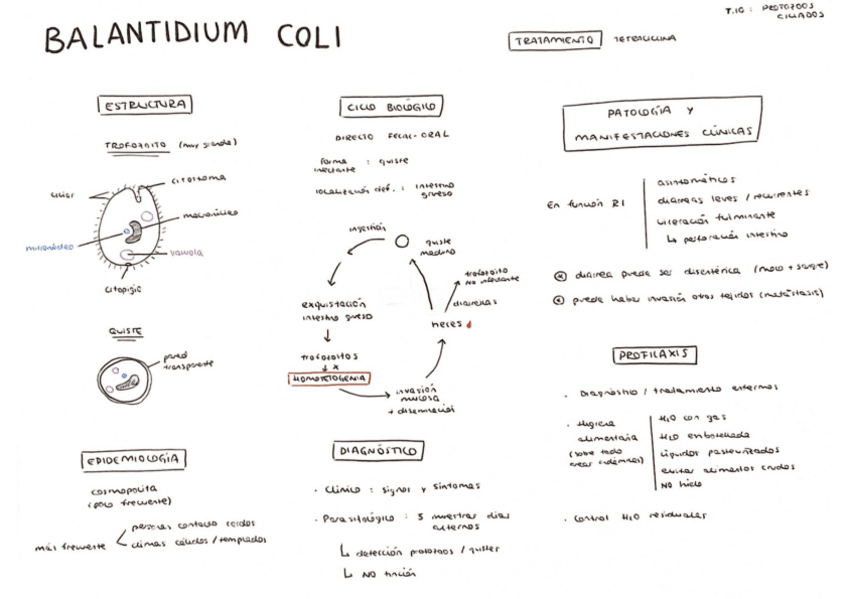 T.16: PROTOZOOS
CILIADOS
BALANTIDIUM COLI
TRATAMIENTO TETRACICLINA
ESTRUCTURA
TROFOZOITO (muy grande)
cilios
citostoma
macronúcleo
micronúcleo
vacuola
citopigio
QUISTE
pared
transparente
EPIDEMIOLOGÍA
cosmopolita
(poco frecuente)
más frecuente
personas contacto cerdos
climas cálidos / templados
CICLO BIOLÓGICO
DIRECTO FECAL-ORAL
forma
infectante : quiste
localización def. : intestino
grueso
ingestión
quiste
maduro
exquistación
intestino grueso
trofozoitos
HOMOTETOGENIA
invasión
mucosa
+ diseminación
heces
diarreas
trofozoito
NO infectante
DIAGNÓSTICO
· Clínico : signos y síntomas
· Parasitológico : 3 muestras días
alternos
↳ detección protozoos / quistes
↳ NO tinción
PATOLOGÍA Y
MANIFESTACIONES CLÍNICAS
En función RI
asintomáticos
diarreas leves / recurrentes
ulceración fulminante
↳ perforación intestino
* diarrea puede ser disentérica (moco + sangre)
* puede haber invasión otros tejidos (metástasis)
PROFILAXIS
· Diagnóstico / tratamiento enfermos
· Higiene
alimentaria
(sobre todo
áreas endémicas)
H2O con gas
H2O embotellada
líquidos pasteurizados
evitar alimentos crudos
NO hielo
· Control H2O residuales